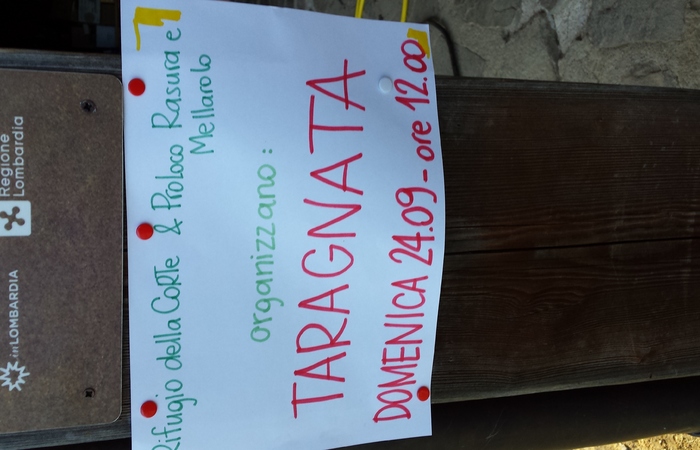 Rifugio della CoRTe & Proloco Rasura e
Mellarolo
organizzano:
TARAGNATA
DOMENICA 24.09 - ore 12.00
Regione
Lombardia
inLOMBARDIA